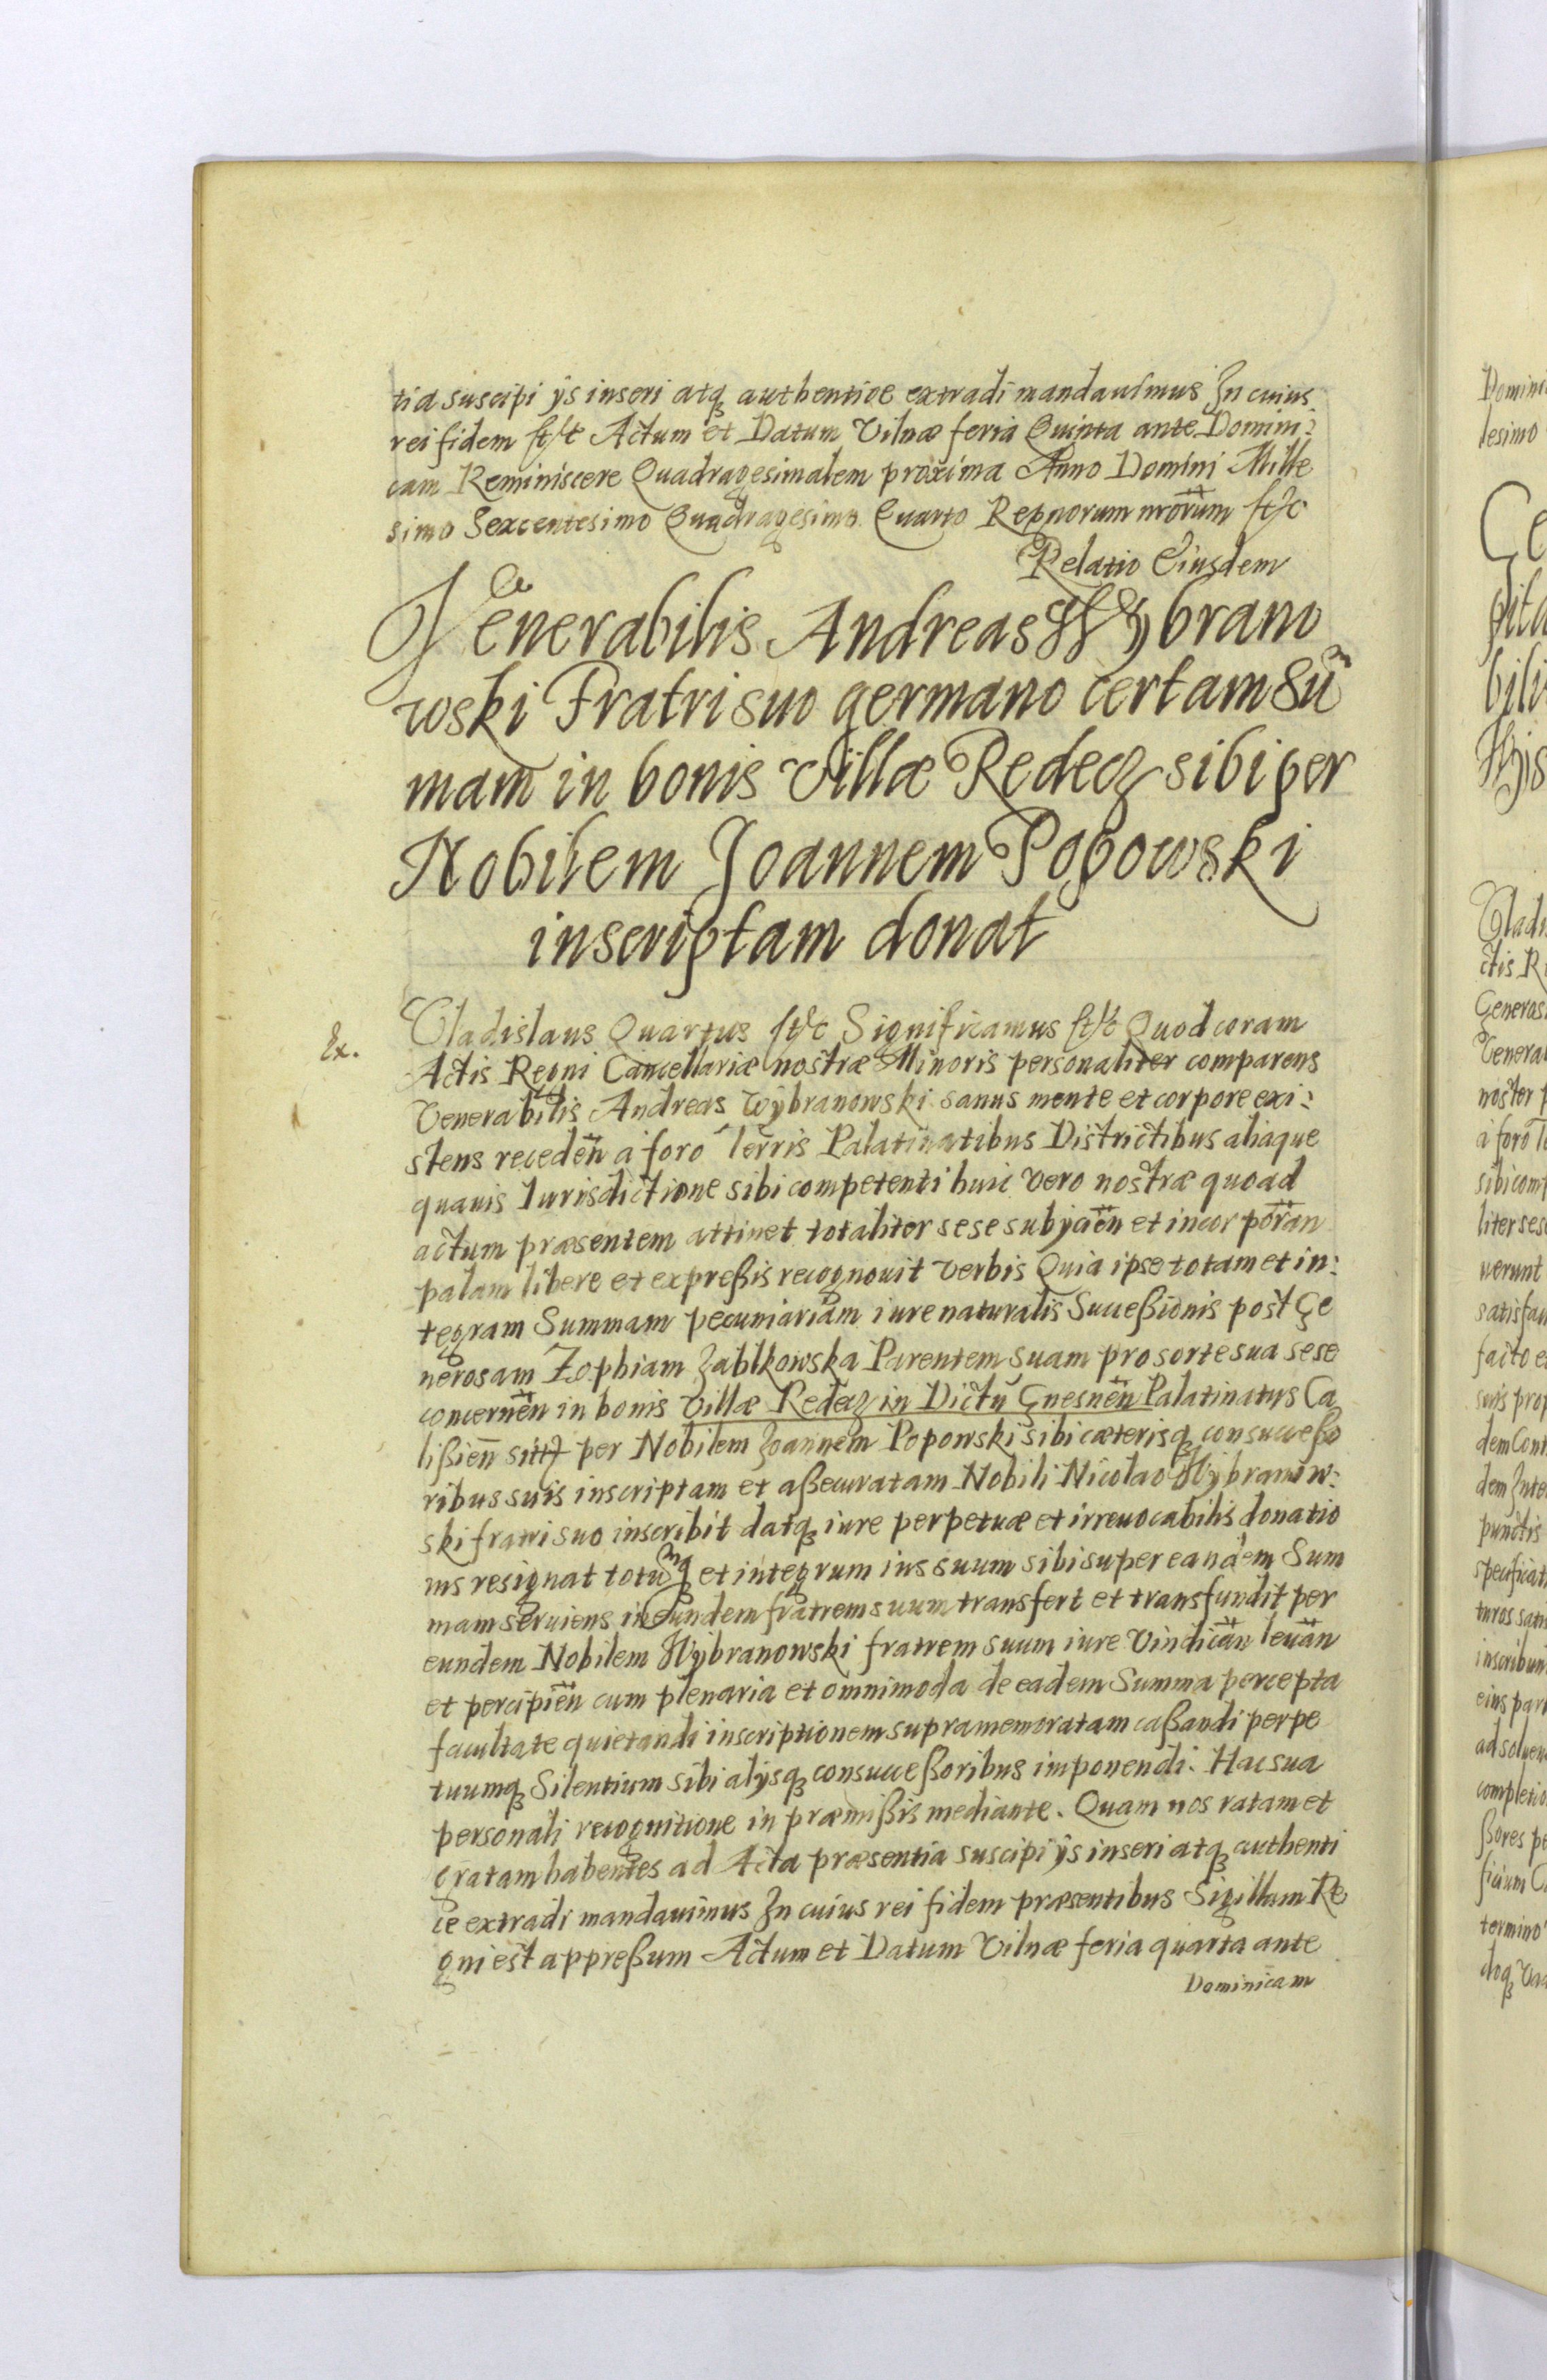 tia suscipi ijs inseri atq authentice extradi mandauimus In cuius
rei fidem &c Actum et Datum Vilnæ feria Quinta ante Domini:
cam Reminiscere Quadragesimalem proxima Anno Domini Mille
simo Sexcentesimo Quadragesimo Quarto Regnorum nrorum &c
Relatio Eiusdem
Venerabilis Andreas Wybrano
wski Fratri suo germano certam Sum
mam in bonis Villæ Redecz sibi per
Nobilem Joannem Popowski
inscriptam donat
Ex.
Vladislaus Quartus &c Significamus &c Quod coram
Actis Regni Cancellariæ nostræ Minoris personaliter comparens
Venerabilis Andreas Wybranowski sanus mente et corpore exi:
stens receden a foro Terris Palatinatibus Districtibus aliaque
quauis Iurisdictione sibi competenti huic vero nostræ quoad
actum præsentem attinet totaliter sese subijcien et incorporan
palam libere et expreßis recognouit verbis Quia ipse totam et in:
tegram Summam pecuniariam iure naturalis Succeßionis post Ge
nerosam Zophiam Zablkowska Parentem suam pro sorte sua sese
concernen in bonis Villæ Redecz in Dictu Gnesnen Palatinatus Ca
lißien sitis per Nobilem Joannem Popowski sibi cæterisq consucceßo
ribus suis inscriptam et aßecuratam Nobili Nicolao Wybranow:
ski fratri suo inscribit datq iure perpetuæ et irreuocabilis donatio
nis resignat totumq et integrum ius suum sibi super eandem Sum
mam seruiens in Eundem fratrem suum transfert et transfundit per
eundem Nobilem Wybranowski fratrem suum iure vindican leuan
et percipien cum plenaria et omnimoda de eadem Summa percepta
facultate quietandi inscriptionem supramemoratam caßandi perpe
tuumq Silentium sibi alijsq consucceßoribus imponendi. Hac sua
personali recognitione in præmißis mediante. Quam nos ratam et
gratam habentes ad Acta præsentia suscipi ijs inseri atq authenti
ce extradi mandauimus In cuius rei fidem præsentibus Sigillum Re
gni est appreßum Actum et Datum Vilnæ feria quarta ante
Dominicam